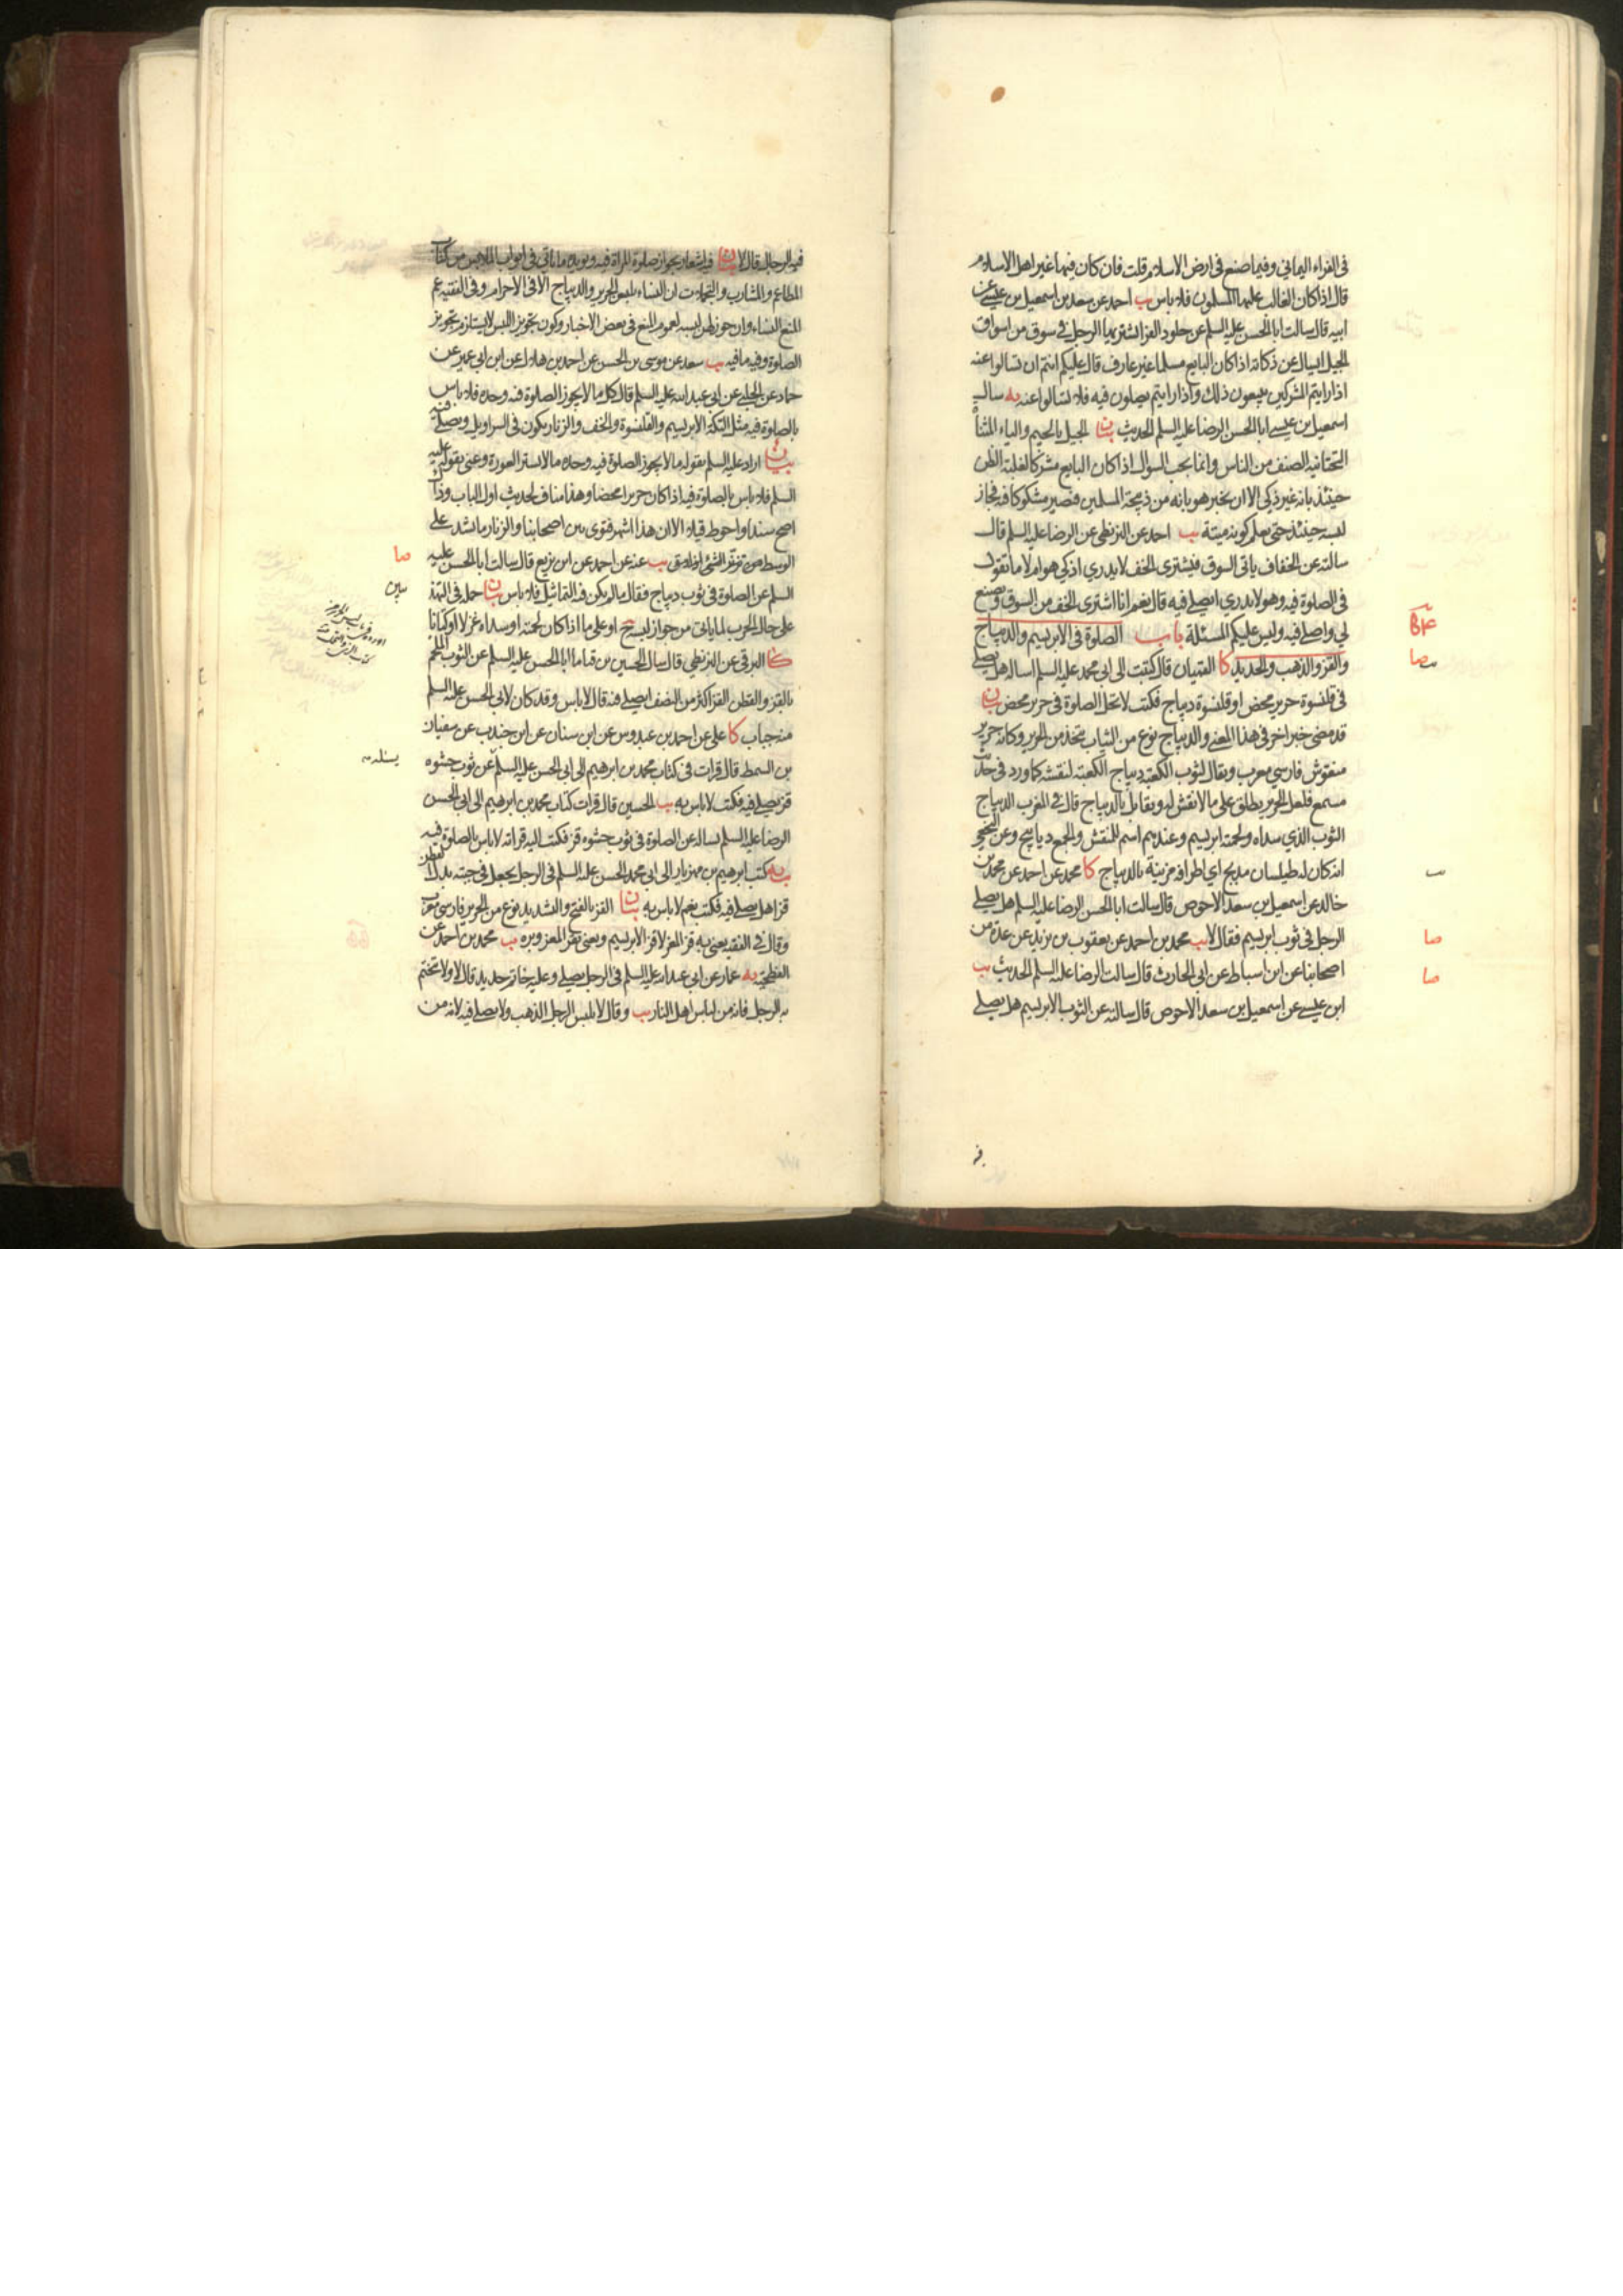 فى الفراء اليمانى وفيما صنع فى ارض الاسلام قلت فان كان فيها غير اهل الاسلام
قال اذا كان الغالب عليها المسلمون فلا باس يب احمد عن سعد بن اسمعيل بن عيسى عن
ابيه قال سالت ابا الحسن عليه السلم عن جلود الفرا يشتريها الرجل فى سوق من اسواق
الجبل ايسال عن ذكاته اذا كان البايع مسلما غير عارف قال عليكم انتم ان تسالوا عنه
اذا رايتم المشركين يبيعون ذلك واذا رايتم يصلون فيه فلا تسالوا عنه يه سال
اسمعيل بن عيسى ابا الحسن الرضا عليه السلم الحديث بيان الجيل بالجيم والياء المثناة
التحتانية الصنف من الناس وانما يجب السؤال اذا كان البايع مشركا لغلبة الظن
حينئذ بانه غير ذكى الا ان يخبر هو بانه من ذبيحة المسلمين فيصير مشكوكا فيه فجاز
لبسه حينئذ حتى يعلم كونه ميتة يب احمد عن البزنطى عن الرضا عليه السلم قال
سالته عن الخفاف ياتى السوق فيشترى الخف لا يدرى اذكى هو ام لا ما تقول
فى الصلوة فيه وهو لا يدرى ايصلى فيه قال نعم انا اشترى الخف من السوق ويصنع
لى واصلى فيه وليس عليكم المسئلة باب الصلوة فى الابريسم والديباج
والقز والذهب والحديد كا القميان قال كتبت الى ابى محمد عليه السلم اساله هل يصلى
فى قلنسوة حرير محض او قلنسوة ديباج فكتب لا تحل الصلوة فى حرير محض بيان
قد مضى خبر اخر فى هذا المعنى والديباج نوع من الثياب يتخذ من الحرير وكانه حرير
منقوش فارسى معرب ويقال لثوب الكعبة ديباج الكعبة لنقشه كما ورد فى حديث
مسمع فلعل الحرير يطلق على ما لا نقش له ويقابل بالديباج قال فى المغرب الديباج
الثوب الذى سداه ولحمته ابريسم وعندهم اسم للنقش والجمع ديابيج وعن النخعى
انه كان له طيلسان مدبج اى اطرافه مزينة بالديباج كا محمد عن احمد عن محمد بن
خالد عن اسمعيل بن سعد الاحوص قال سالت ابا الحسن الرضا عليه السلم هل يصلى
الرجل فى ثوب ابريسم فقال لا يب محمد بن احمد عن يعقوب بن يزيد عن عدة من
اصحابنا عن ابن اسباط عن ابى الحارث قال سالت الرضا عليه السلم الحديث يب
ابن عيسى عن اسمعيل بن سعد الاحوص قال سالته عن الثوب الابريسم هل يصلى
صا
صا
فيه الرجال قال لا بيان فيه اشعار بجواز صلوة المراة فيه ويؤيده ما ياتى فى ابواب الملابس من كتاب
المطاعم والمشارب والتجملات ان النساء يلبسن الحرير والديباج الا فى الاحرام وفى الفقيه عم
المنع النساء وان جوز لهن لبسه لعموم المنع فى بعض الاخبار وكون تجويز اللبس لا يستلزم تجويز
الصلوة وفيه ما فيه يب سعد عن موسى بن الحسن عن احمد بن هلال عن ابن ابى عمير عن
حماد عن الحلبى عن ابى عبد الله عليه السلم قال كل ما لا يجوز الصلوة فيه وحده فلا باس
بالصلوة فيه مثل التكة الابريسم والقلنسوة والخف والزنار يكون فى السراويل ويصلى فيه
بيان اراد عليه السلم بقوله ما لا يجوز الصلوة فيه وحده ما لا يستر العورة وعنى بقوله عليه
السلم فلا باس بالصلوة فيه اذا كان حريرا محضا وهذا مناف لحديث اول الباب وذاك
اصح سندا واحوط قيلا الا ان هذا اشهر فتوى بين اصحابنا والزنار ما يشد على
الوسط من تزنر الشئ اذا دق يب عنه عن احمد عن ابن بزيع قال سالت ابا الحسن عليه
السلم عن الصلوة فى ثوب ديباج فقال ما لم يكن فيه التماثيل فلا باس بيان حمله فى التهذيب
على حال الحرب لما ياتى من جواز لبسه ح او على ما اذا كان لحمته او سداه غزلا او كتانا
كا البرقى عن البزنطى قال سال الحسين بن قياما ابا الحسن عليه السلم عن الثوب الملحم
بالقز والقطن القز اكثر من النصف ايصلى فيه قال لا باس وقد كان لابى الحسن عليه السلم
منه جباب كا على عن احمد بن عبدوس عن ابن سنان عن ابن جندب عن سفيان
بن السمط قال قرات فى كتاب محمد بن ابرهيم الى ابى الحسن عليه السلم عن ثوب حشوه
قز يصلى فيه فكتب لا باس به يب الحسين قال قرات كتاب محمد بن ابرهيم الى ابى الحسن
الرضا عليه السلم يساله عن الصلوة فى ثوب حشوه قز فكتب اليه قراته لا باس بالصلوة فيه
يه كتب ابرهيم بن مهزيار الى ابى محمد الحسن عليه السلم فى الرجل يجعل فى جبته بدل القطن
قزا هل يصلى فيه فكتب نعم لا باس به بيان القز بالفتح والتشديد نوع من الحرير فارسى معرب
وقال فى الفقيه يعنى به قز المعز لا قز الابريسم ويعنى بقز المعز وبره يب محمد بن احمد عن
الفطحية يه عمار عن ابى عبد الله عليه السلم فى الرجل يصلى وعليه خاتم حديد قال لا ولا يتختم
به الرجل فانه من لباس اهل النار يب وقال لا يلبس الرجل الذهب ولا يصلى فيه لانه من
صا
يسئله